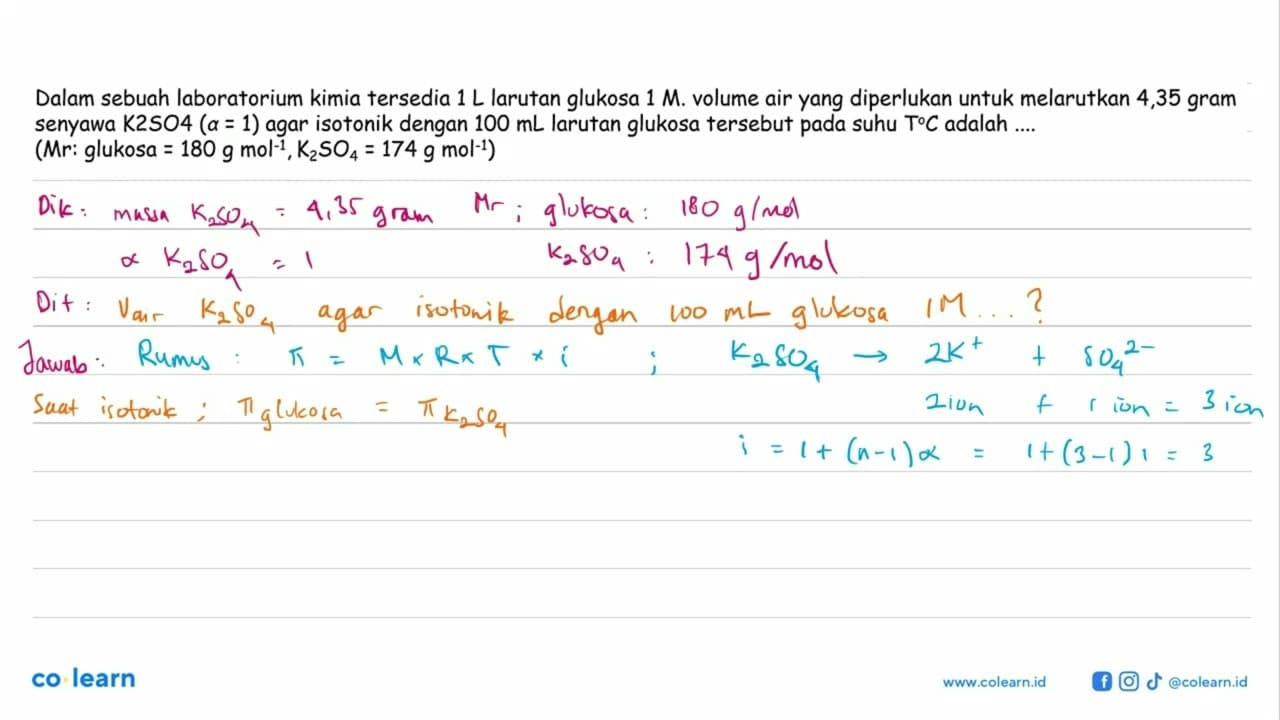 Dalam sebuah laboratorium kimia tersedia 1 L larutan glukosa 1 M. volume air yang diperlukan untuk melarutkan 4,35 gram
senyawa K2SO4 (α = 1) agar isotonik dengan 100 mL larutan glukosa tersebut pada suhu T°C adalah ....
(Mr: glukosa = 180 g mol⁻¹, K₂SO₄ = 174 g mol⁻¹)
Dik : massa K₂SO₄ = 4,35 gram Mr ; glukosa : 180 g/mol
α K₂SO₄ = 1 K₂SO₄ : 174 g/mol
Dit : Vair K₂SO₄ agar isotonik dengan 100 mL glukosa 1M ... ?
Jawab : Rumus : π = M x R x T x i ; K₂SO₄ → 2K⁺ + SO₄²⁻
Saat isotonik ; π glukosa = π K₂SO₄ 2 ion + 1 ion = 3 ion
i = 1 + (n-1)α = 1 + (3-1) 1 = 3
co·learn www.colearn.id @colearn.id